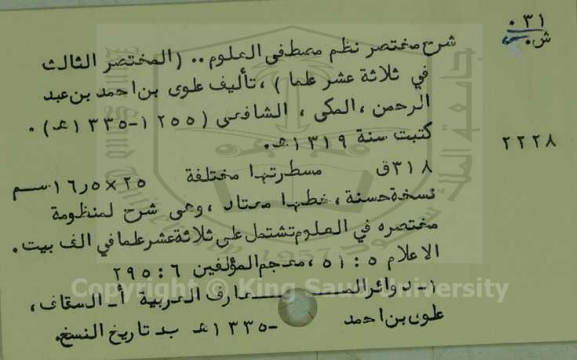 ٠٣١
ش.س
شرح مختصر نظم مصطفى العلوم.. (المختصر الثالث
في ثلاثة عشر علما)، تأليف علوى بن احمد بن عبد
الرحمن، المكى، الشافعى (١٢٥٥-١٣٣٥هـ).
كتبت سنة ١٣١٩هـ.
٢٢٢٨
٣١٨ق مسطرتها مختلفة ٢٥×١٦٫٥سم
نسخة حسنة، خطها معتاد، وهى شرح لمنظومة
مختصره في العلوم تشتمل على ثلاثة عشر علما في الف بيت.
الاعلام ٥: ٥١، معجم المؤلفين ٦: ٢٩٥
١- دوائر المـــــعارف العربية أ- السقاف،
علوى بن احمد -١٣٣٥هـ ب- تاريخ النسخ.
Copyright © King Saud University
1957